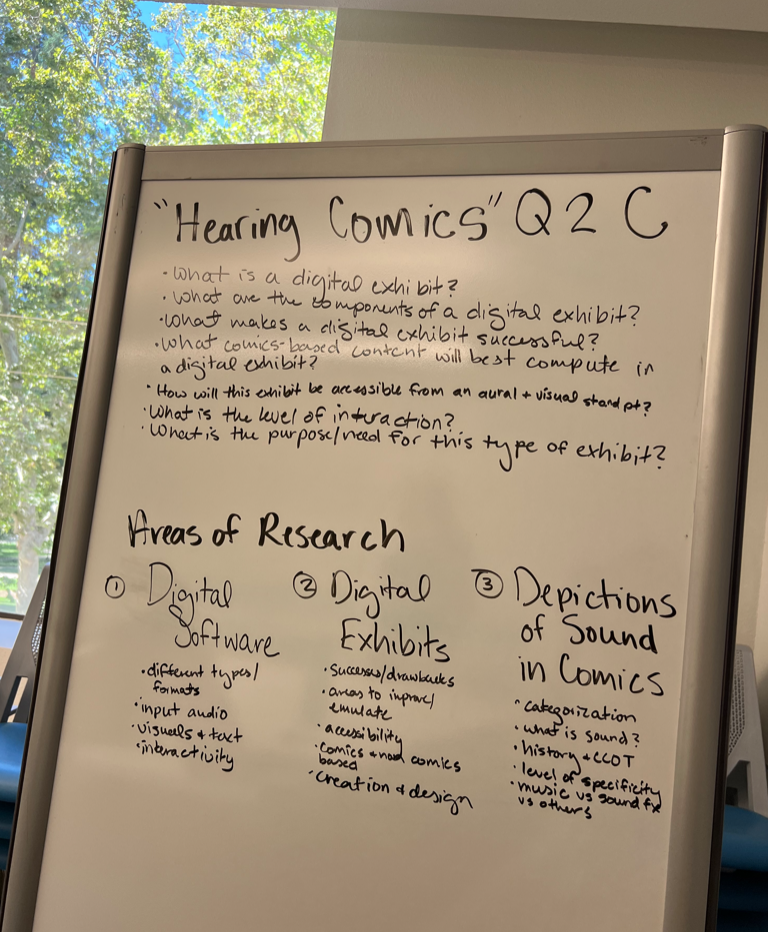 "Hearing Comics" Q2C
• What is a digital exhibit?
• What are the components of a digital exhibit?
• What makes a digital exhibit successful?
• What comics-based content will best compute in
a digital exhibit?
• How will this exhibit be accessible from an aural + visual standpt?
• What is the level of interaction?
• What is the purpose/need for this type of exhibit?
Areas of Research
① Digital
Software
• different types/
formats
• input audio
• visuals + text
• interactivity
② Digital
Exhibits
• Successes/drawbacks
• areas to improve/
emulate
• accessibility
• Comics + non comics
based
• Creation + design
③ Depictions
of Sound
in Comics
• categorization
• what is sound?
• history + CCOT
• level of specificity
• music vs sound fx
vs others